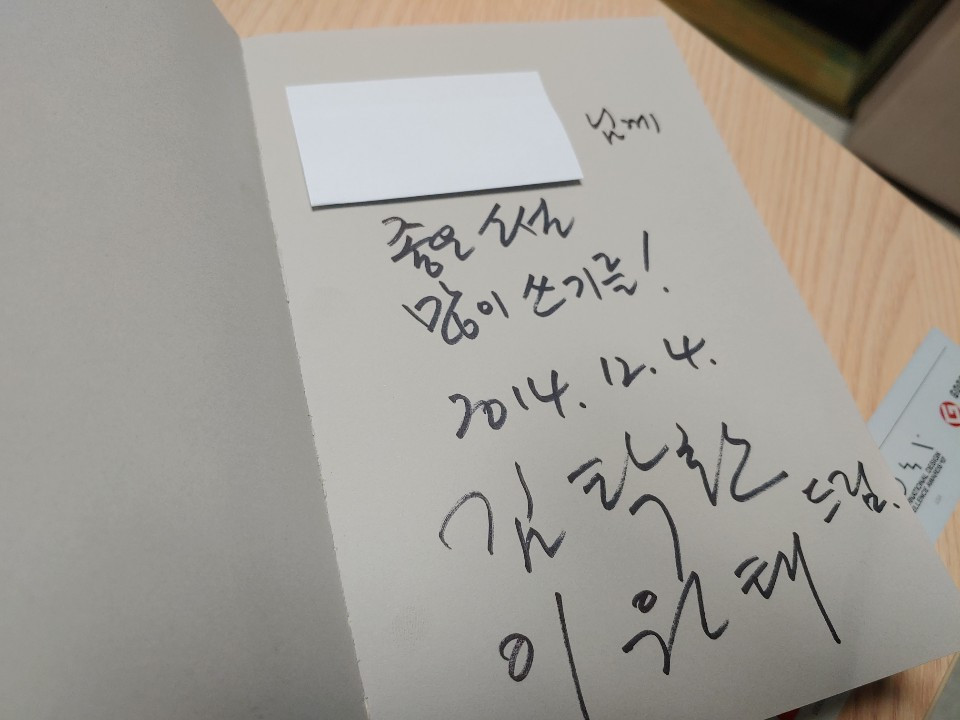 님께
좋은 소설
많이 쓰기를!
2014. 12. 4.
김탁환
이원태 드림.
NATIONAL DESIGN